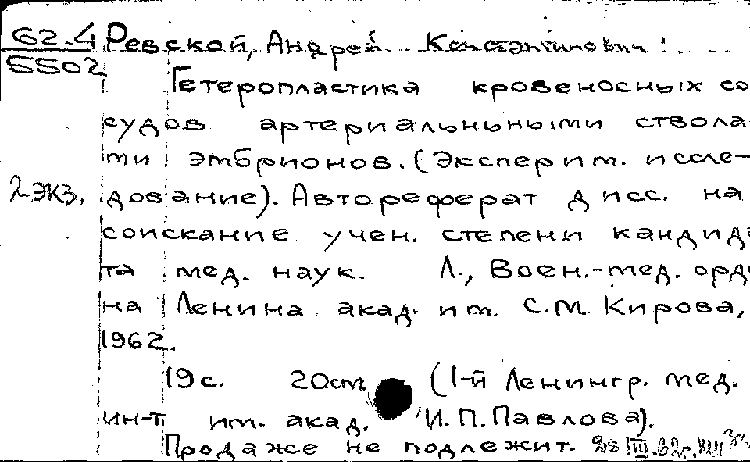 62-4
5502
Ревской, Андрей Константинович.
Гетеропластика кровеносных со
судов артериальныными ствола-
ми эмбрионов. (Эксперим. иссле-
дование). Автореферат дисс. на
2 экз.
соискание учен. степени кандида
та мед. наук. Л., Воен.-мед. орде
на Ленина акад. им. С.М. Кирова,
1962.
19 с. 20 см (1-й Ленингр. мед.
ин-т им. акад. И.П. Павлова).
Продаже не подлежит.